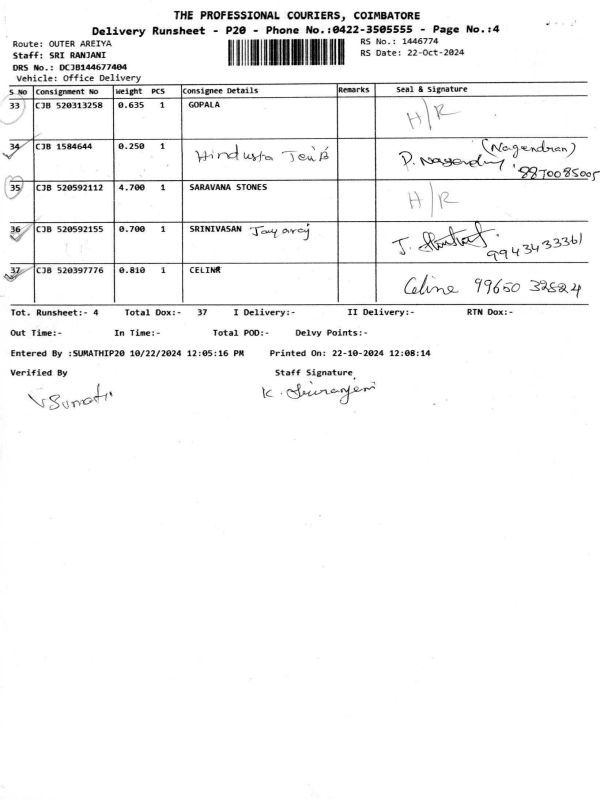 THE PROFESSIONAL COURIERS, COIMBATORE
Delivery Runsheet - P20 - Phone No.:0422-3505555 - Page No.:4
Route: OUTER AREIYA
RS No.: 1446774
Staff: SRI RANJANI
RS Date: 22-Oct-2024
DRS No.: DCJB144677404
Vehicle: Office Delivery
S No Consignment No Weight PCS Consignee Details Remarks Seal & Signature
33 CJB 520313258 0.635 1 GOPALA H/R
34 CJB 1584644 0.250 1 Hindusta (Nagendran)
P. Nagendran 8870085005
35 CJB 520592112 4.700 1 SARAVANA STONES H/R
36 CJB 520592155 0.700 1 SRINIVASAN Jayaraj J. 9943433361
37 CJB 520397776 0.810 1 CELINR Celine 99650 32524
Tot. Runsheet:- 4 Total Dox:- 37 I Delivery:- II Delivery:- RTN Dox:-
Out Time:- In Time:- Total POD:- Delvy Points:-
Entered By :SUMATHIP20 10/22/2024 12:05:16 PM Printed On: 22-10-2024 12:08:14
Verified By Staff Signature
V Sumathi K.